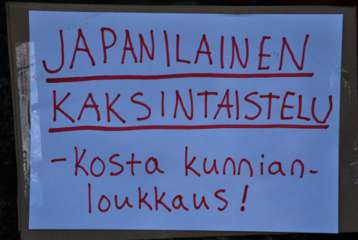 JAPANILAINEN
KAKSINTAISTELU
-Kosta kunnian-
loukkaus!